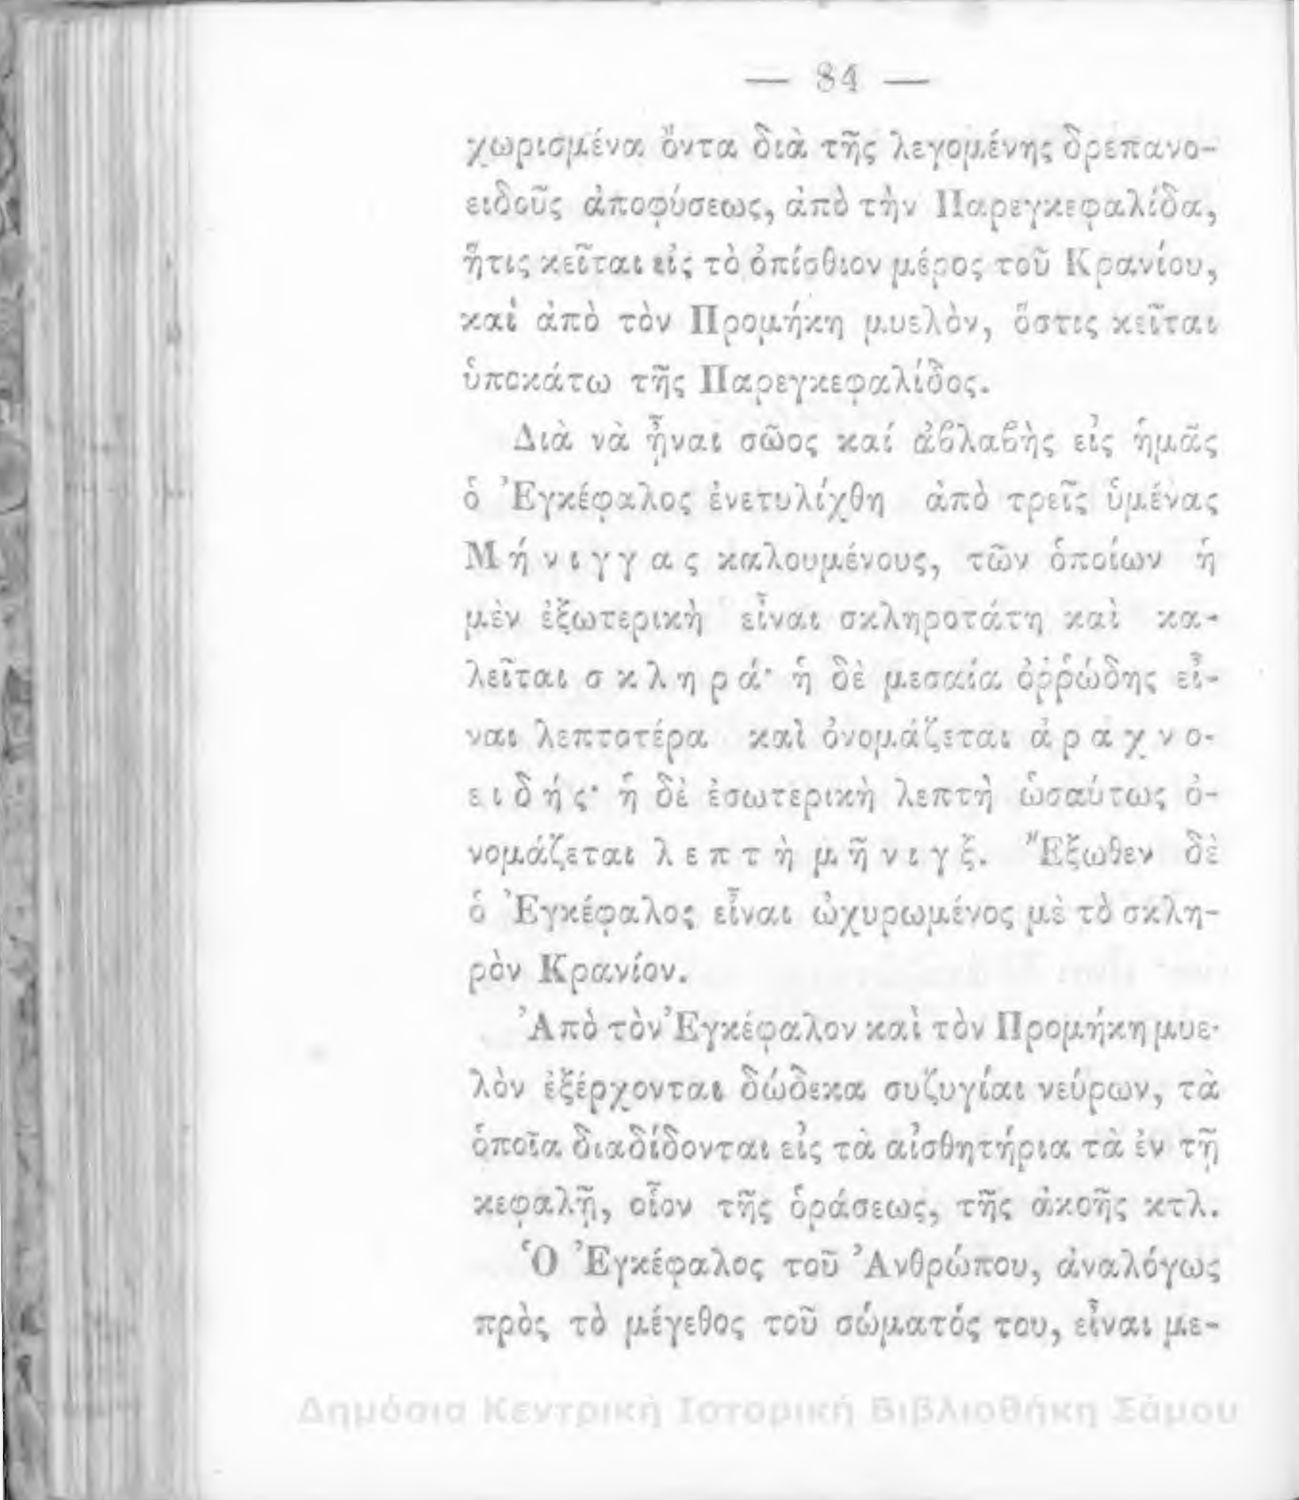 — 84 —
χωρισμένα ὄντα διὰ τῆς λεγομένης δρεπανο-
ειδοῦς ἀποφύσεως, ἀπὸ τὴν Παρεγκεφαλίδα,
ἥτις κεῖται εἰς τὸ ὀπίσθιον μέρος τοῦ Κρανίου,
καὶ ἀπὸ τὸν Προμήκη μυελὸν, ὅστις κεῖται
ὑποκάτω τῆς Παρεγκεφαλίδος.
Διὰ νὰ ᾖναι σῶος καί ἀβλαβὴς εἰς ἡμᾶς
ὁ Ἐγκέφαλος ἐνετυλίχθη ἀπὸ τρεῖς ὑμένας
Μ ή ν ι γ γ α ς καλουμένους, τῶν ὁποίων ἡ
μὲν ἐξωτερικὴ εἶναι σκληροτάτη καὶ κα-
λεῖται σ κ λ η ρ ά· ἡ δὲ μεσαία ὀῤῥώδης εἶ-
ναι λεπτοτέρα καὶ ὀνομάζεται ἀ ρ α χ ν ο-
ε ι δ ή ς· ἡ δὲ ἐσωτερικὴ λεπτὴ ὡσαύτως ὀ-
νομάζεται λ ε π τ ὴ μ ῆ ν ι γ ξ. Ἔξωθεν δὲ
ὁ Ἐγκέφαλος εἶναι ὠχυρωμένος μὲ τὸ σκλη-
ρὸν Κρανίον.
Ἀπὸ τὸν Ἐγκέφαλον καὶ τὸν Προμήκη μυε-
λὸν ἐξέρχονται δώδεκα συζυγίαι νεύρων, τὰ
ὁποῖα διαδίδονται εἰς τὰ αἰσθητήρια τὰ ἐν τῇ
κεφαλῇ, οἷον τῆς ὁράσεως, τῆς ἀκοῆς κτλ.
Ὁ Ἐγκέφαλος τοῦ Ἀνθρώπου, ἀναλόγως
πρὸς τὸ μέγεθος τοῦ σώματός του, εἶναι με-
Δημόσια Κεντρική Ιστορική Βιβλιοθήκη Σάμου